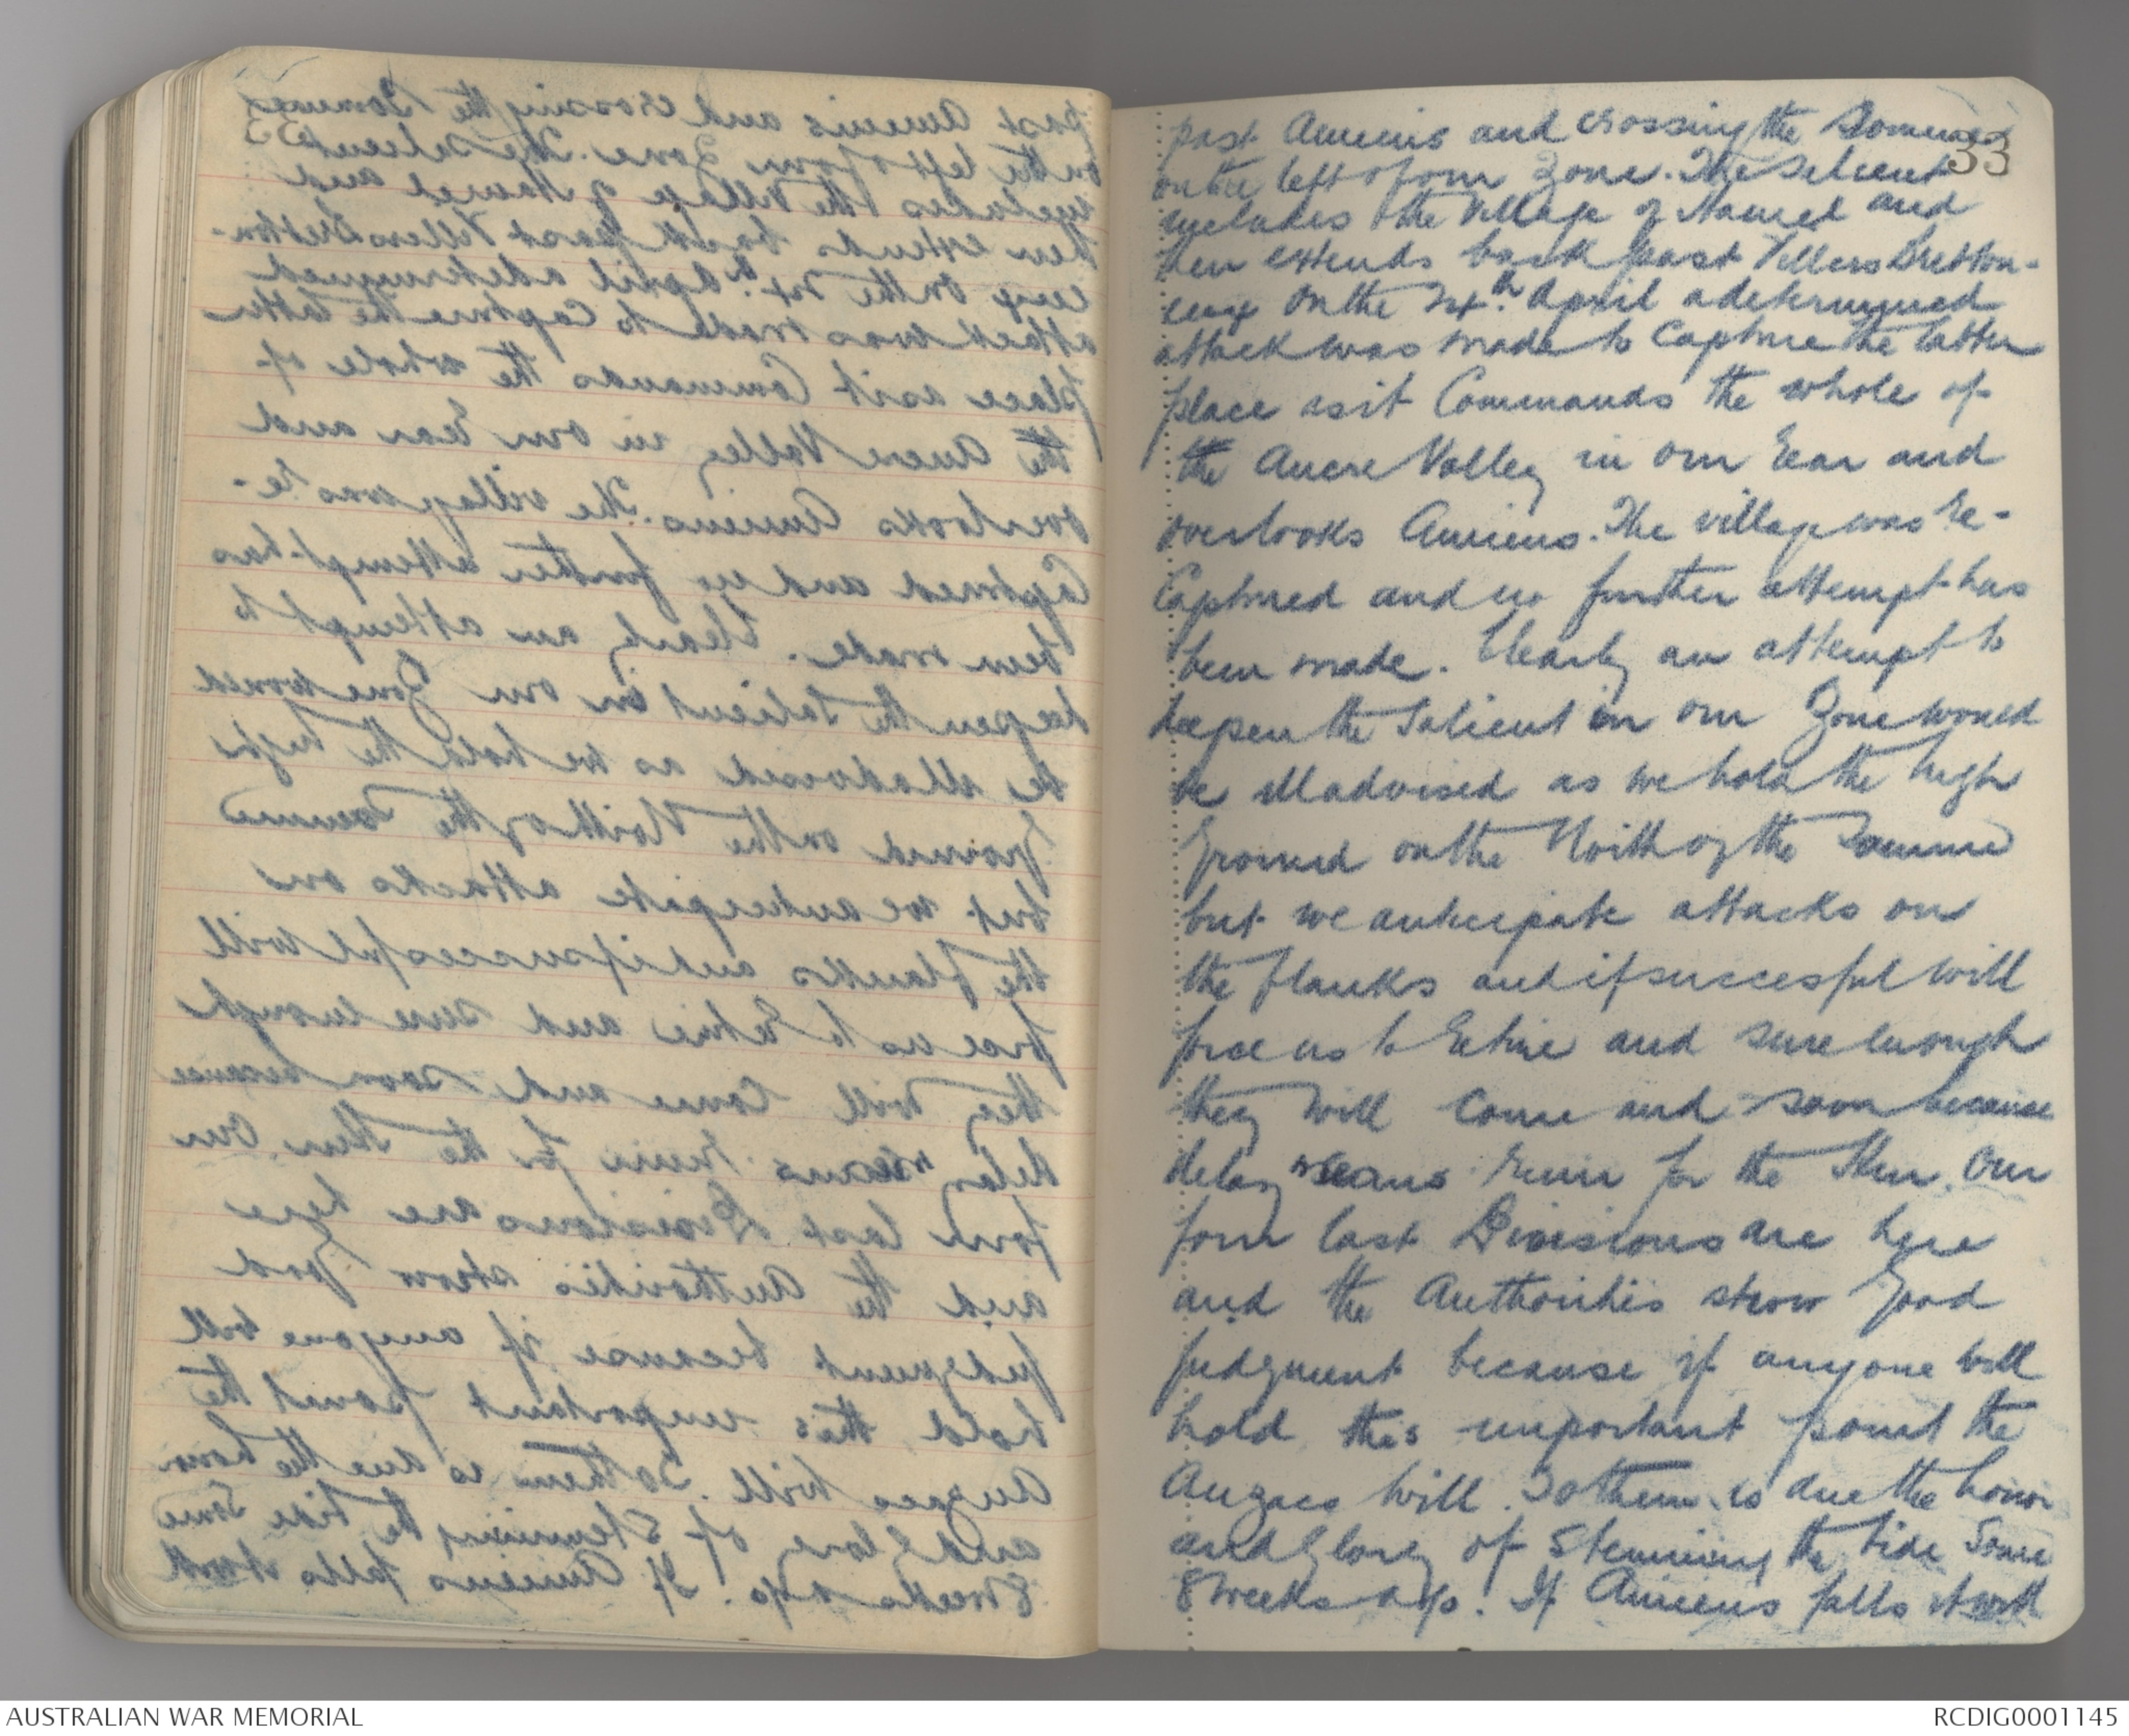 33
past Amiens and crossing the Somme
on the left of our Zone. The salient
includes the village of Hamel and
then extends back past Villers Bretton-
eux on the 24th. April a determined
attack was made to capture the latter
place as it Commands the whole of
the Ancre Valley in our rear and
overlooks Amiens. The village was re-
Captured and no further attempt has
been made. Clearly an attempt to
deepen the Salient in our Zone would
be illadvised as we hold the high
ground on the North of the Somme
but we anticipate attacks on
the flanks and if succesful will
force us to retire and sure enough
they will come and soon because
delay means ruin for the Hun. Our
four last Divisions are here
and the Authorities show good
judgment because if anyone will
hold this important point the
Anzacs will. To them is due the honor
and glory of stemming the tide some
8 weeks ago. If Amiens falls it will
AUSTRALIAN WAR MEMORIAL
RCDIG0001145